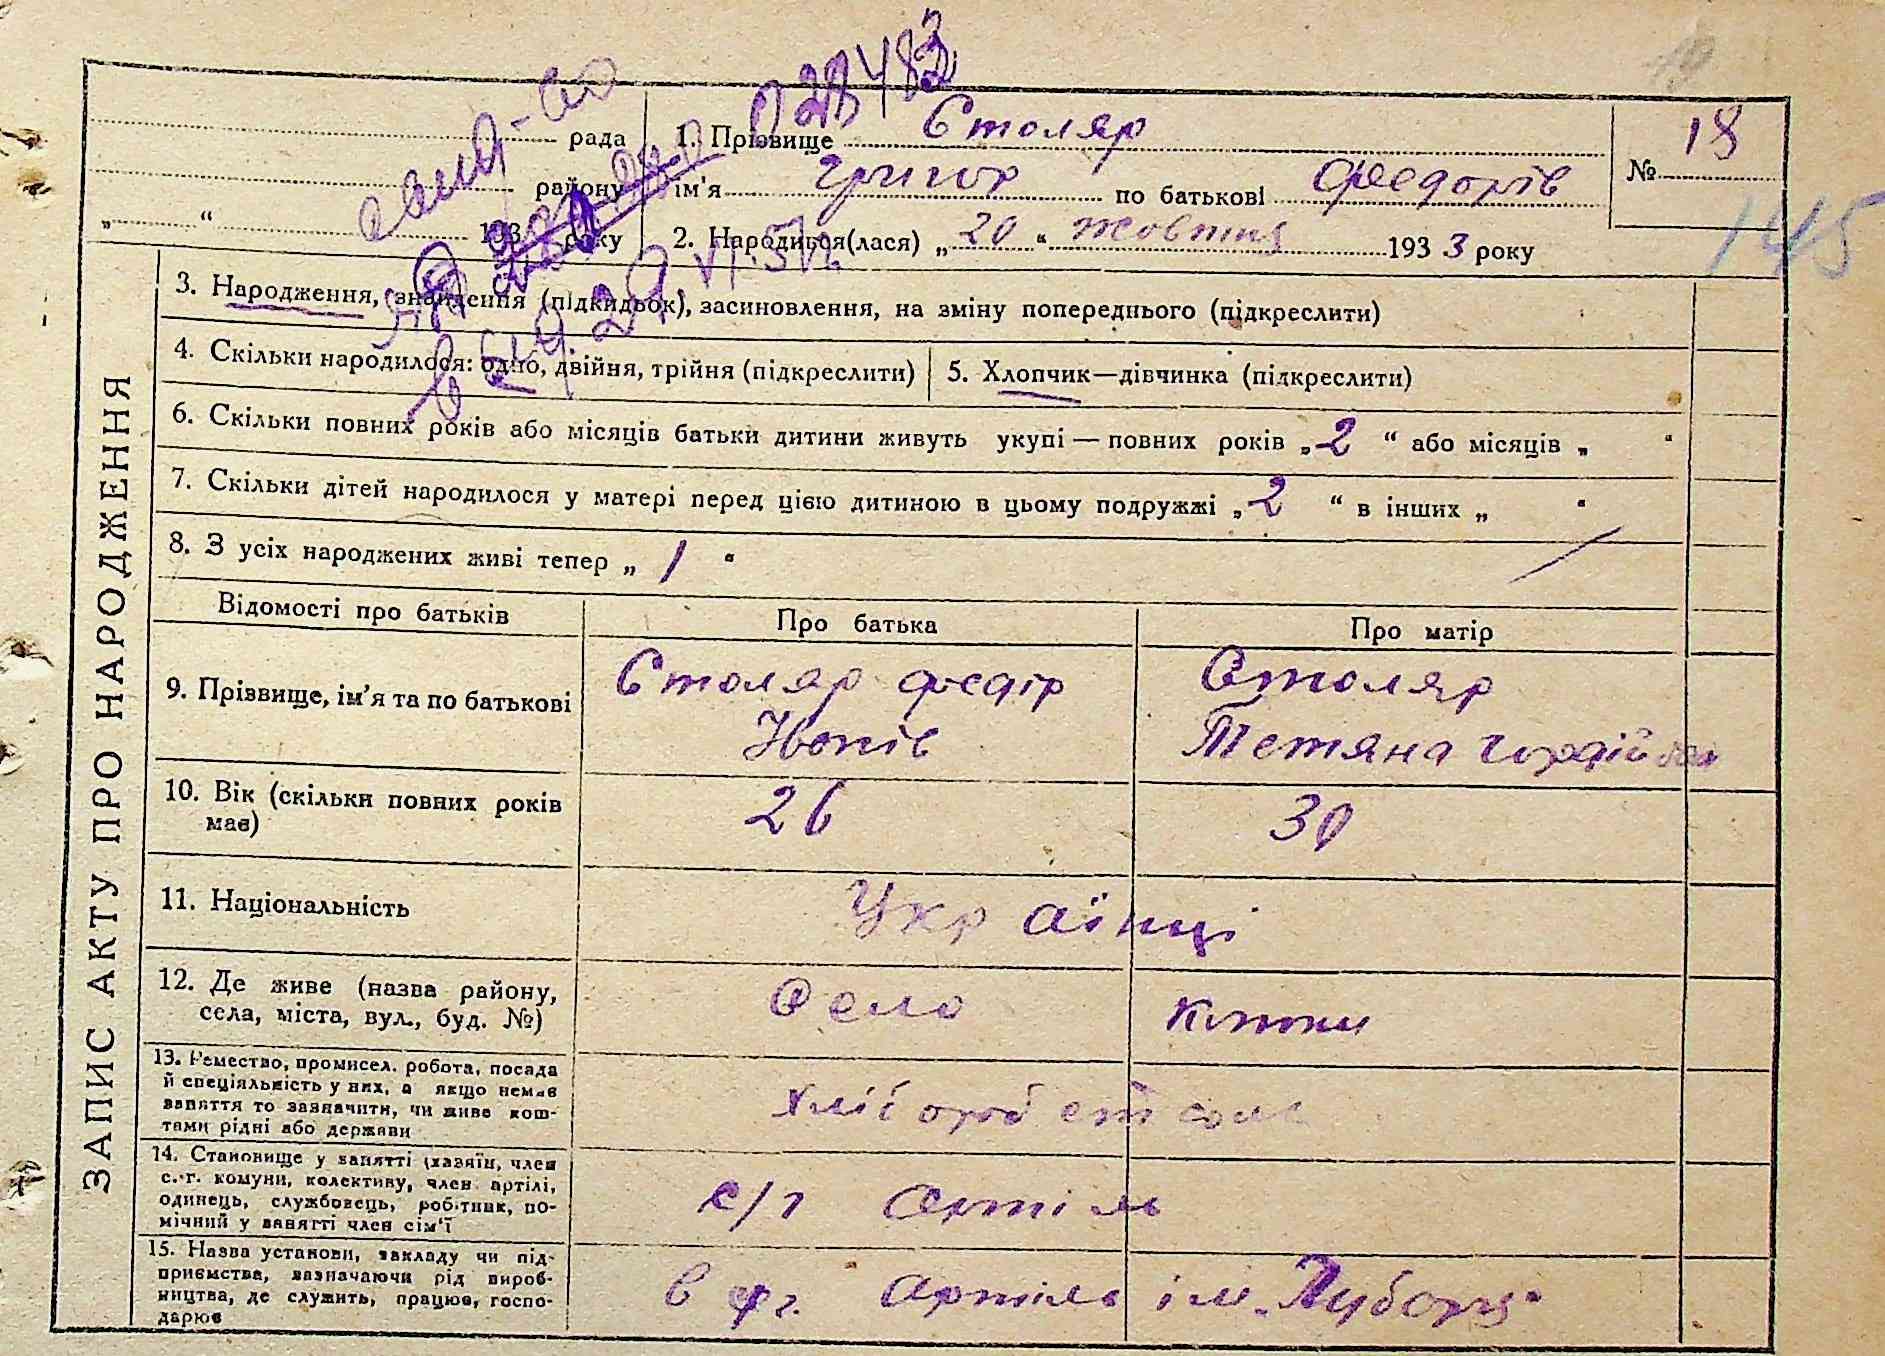 028483
18
145
рада
району
„ “ 193 року
1. Прізвище Столяр
ім'я Григор по батькові Федорів
№ 18
2. Народився(лася) „ 20 “ жовтня 1933 року
3. Народження, знайдення (підкидьок), засиновлення, на зміну попереднього (підкреслити)
4. Скільки народилося: одно, двійня, трійня (підкреслити)
5. Хлопчик—дівчинка (підкреслити)
6. Скільки повних років або місяців батьки дитини живуть укупі — повних років „ 2 “ або місяців „ “
7. Скільки дітей народилося у матері перед цією дитиною в цьому подружжі „ 2 “ в інших „ “
8. З усіх народжених живі тепер „ 1 “
ЗАПИС АКТУ ПРО НАРОДЖЕННЯ
Відомості про батьків
Про батька
Про матір
9. Прізвище, ім'я та по батькові
Столяр Федір
Столяр
Тетяна
10. Вік (скільки повних років
має)
26
30
11. Національність
Українці
12. Де живе (назва району,
села, міста, вул., буд. №)
Село
13. Ремество, промисел. робота, посада
й спеціяльність у них, а якщо немає
заняття то зазначити, чи живе кош-
тами рідні або держави
14. Становище у занятті (хазяїн, член
с.-г. комуни, колективу, член артілі,
одинець, службовець, робітник, по-
мічний у занятті член сім'ї
с/г артіль
15. Назва установи, закладу чи під-
приємства, зазначаючи рід вироб-
ництва, де служить, працює, госпо-
дарює
в артіль ім.